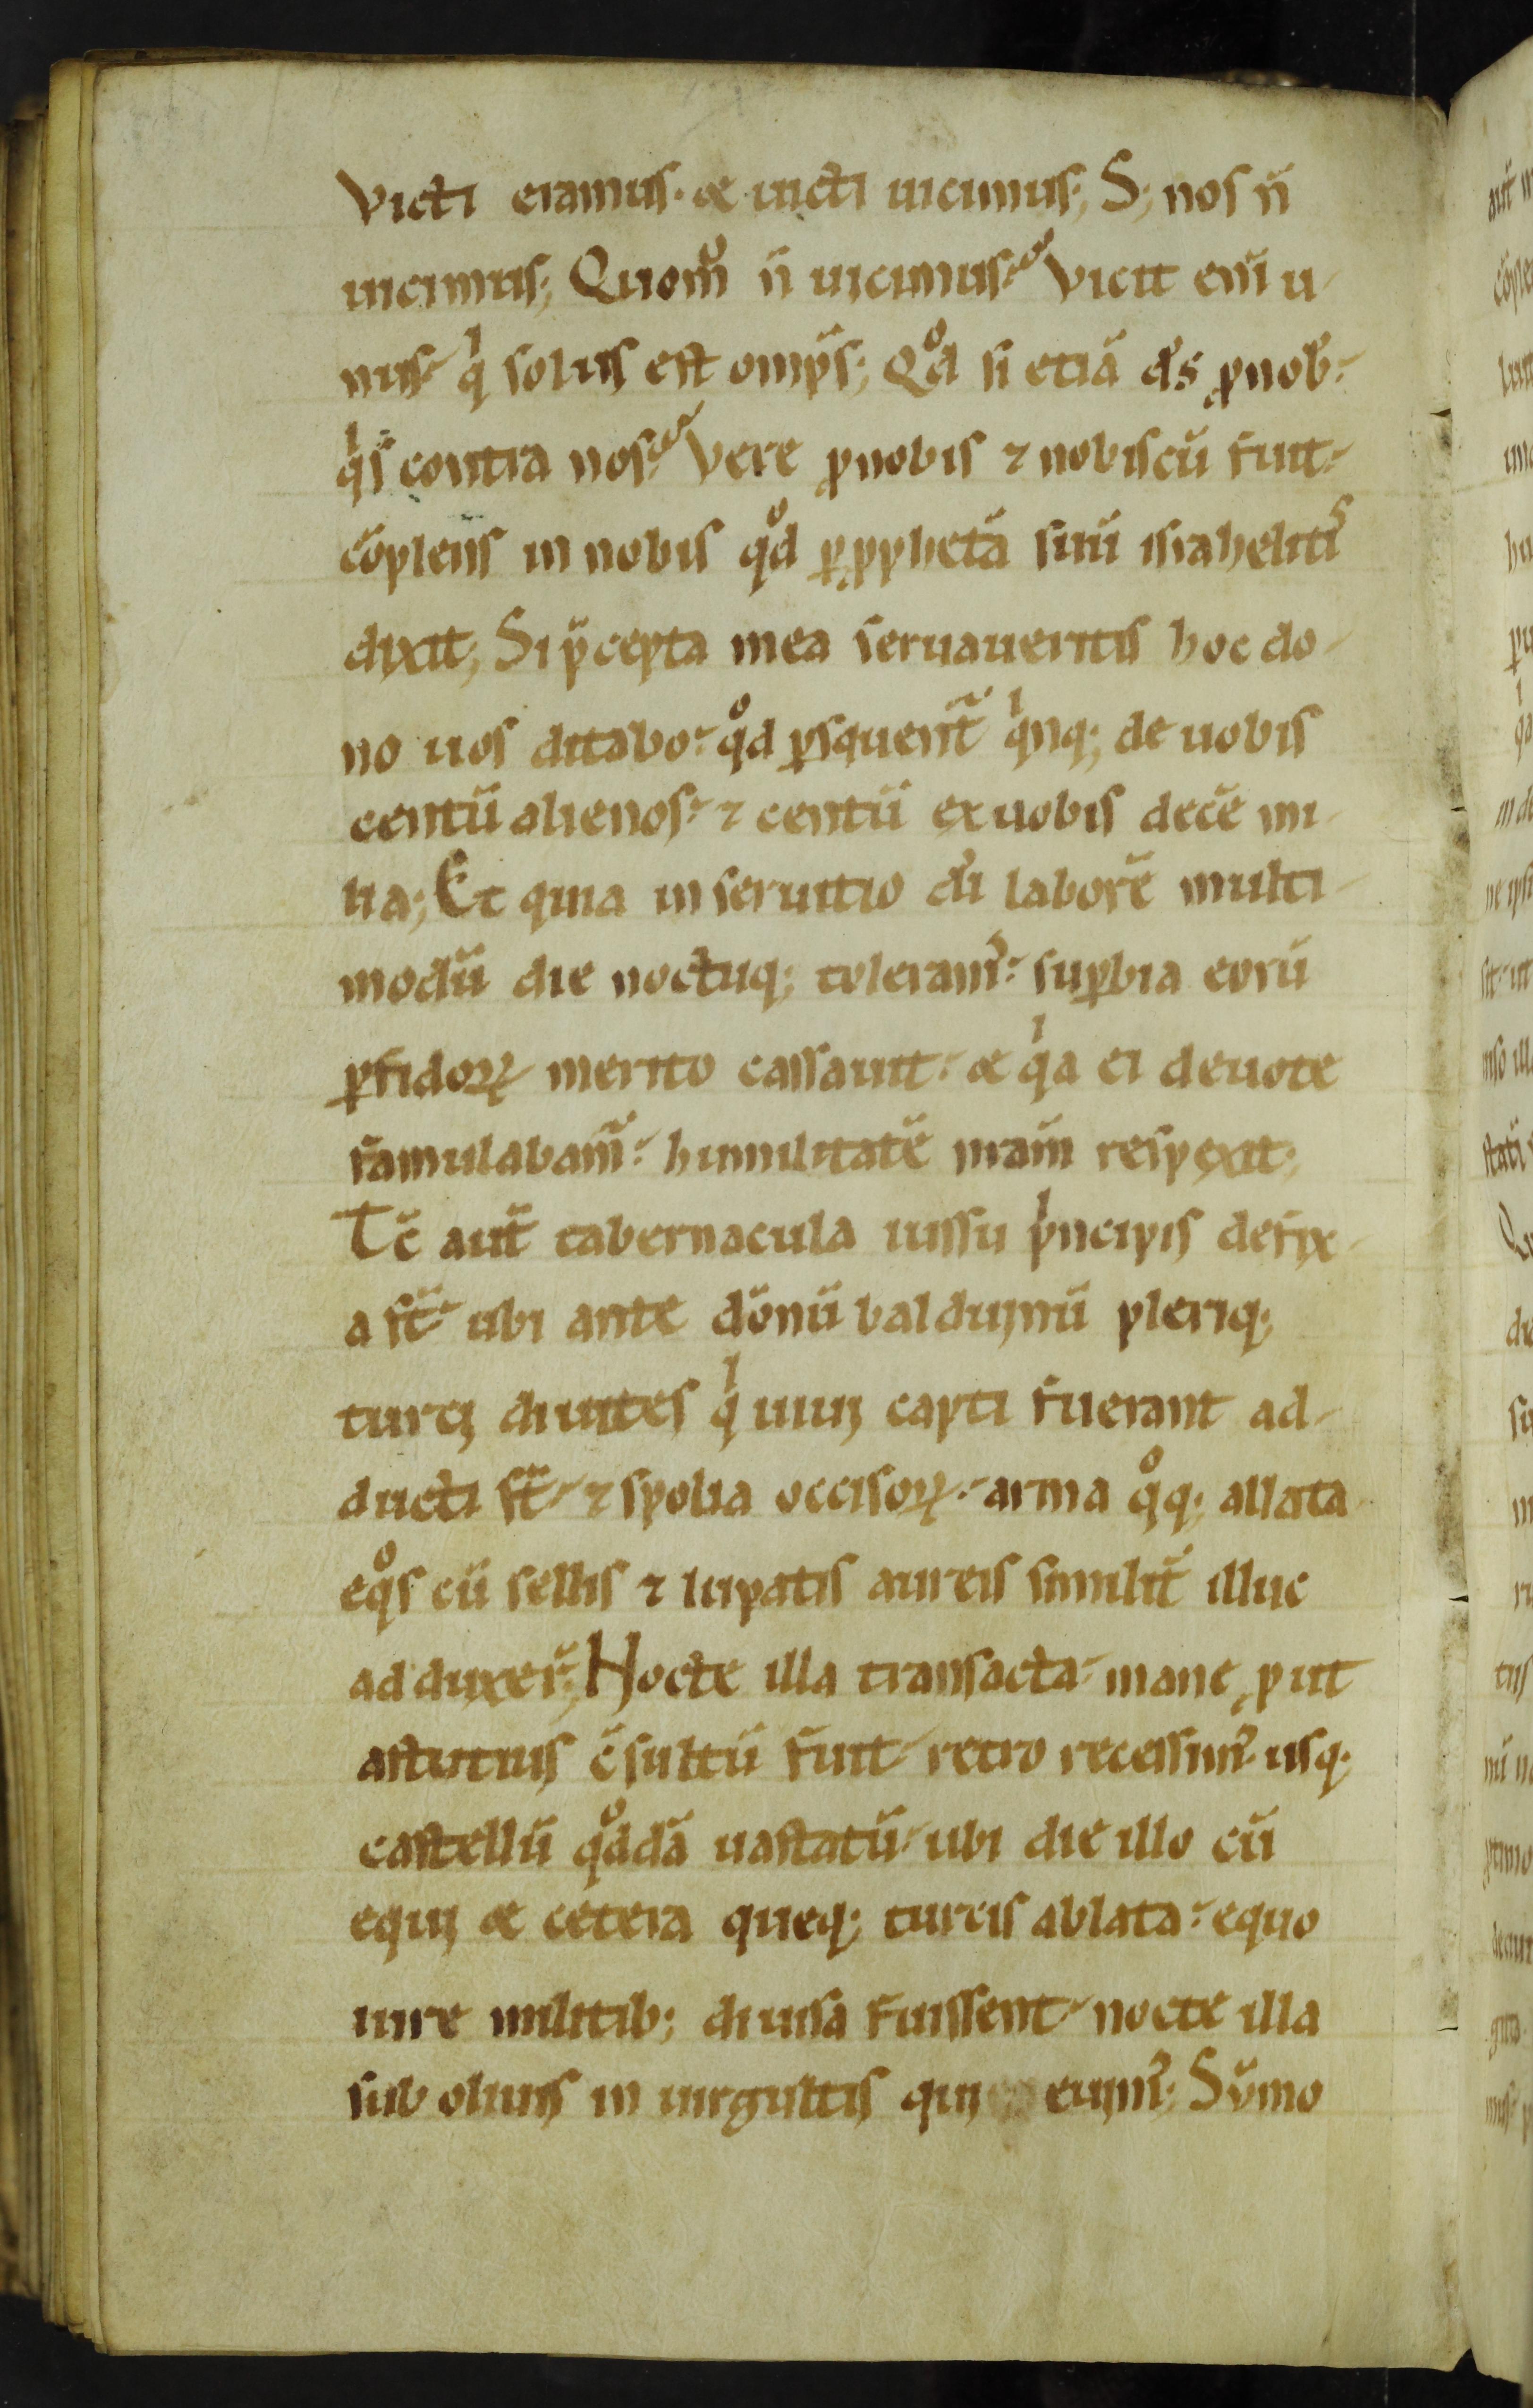 Victi eramus. & uicti uicimus; S; nos n̄
uicimus; Quom̊ n̄ uicimus? Vicit eni̅ u-
nus. qͥ solus est omp̅s; Qͦd si etiā d̅s ꝓ nob̅.
qͥs contra nos? Vere ꝓ nobis ⁊ nobiscū fuit.
cōplens in nobis qͦd ꝑ ꝓphetā suū israhelitis
dixit; Si p̄cepta mea seruaueritis hoc do-
no uos ditabo. qͦd ꝑsquent̄ qͥnq; de uobis
centū alienos. ⁊ centū ex uobis decē mi-
lia; Et quia in seruitio dī laborē multi-
modū die noctuq; toleram᷒. suꝑbia eorū
ꝑfidoꝝ merito cassauit. & qͥa ei deuote
famulabam᷒. humilitatē nr̄am respexit;
Tc̄ aut̄ tabernacula iussu pͥncipis defix-
a st̄. ubi ante dōnū balduinū pleriq;
turci diuites qͥ uiui capti fuerant ad-
ducti st̄. ⁊ spolia occisoꝝ. arma qͦq; allata
eqͦs cū sellis ⁊ lupatis aureis similit̄ illuc
adduxer̄; Nocte illa transacta. mane ꝓut
astutius c̄sultū fuit. retro recessim᷒ usq;
castellū qͦddā uastatū. ubi die illo cū
equi & cetera queq; turcis ablata. equo
iure militib; diuisa fuissent. nocte illa
sub oliuis in uirgultis qui euim᷒; Sūmo